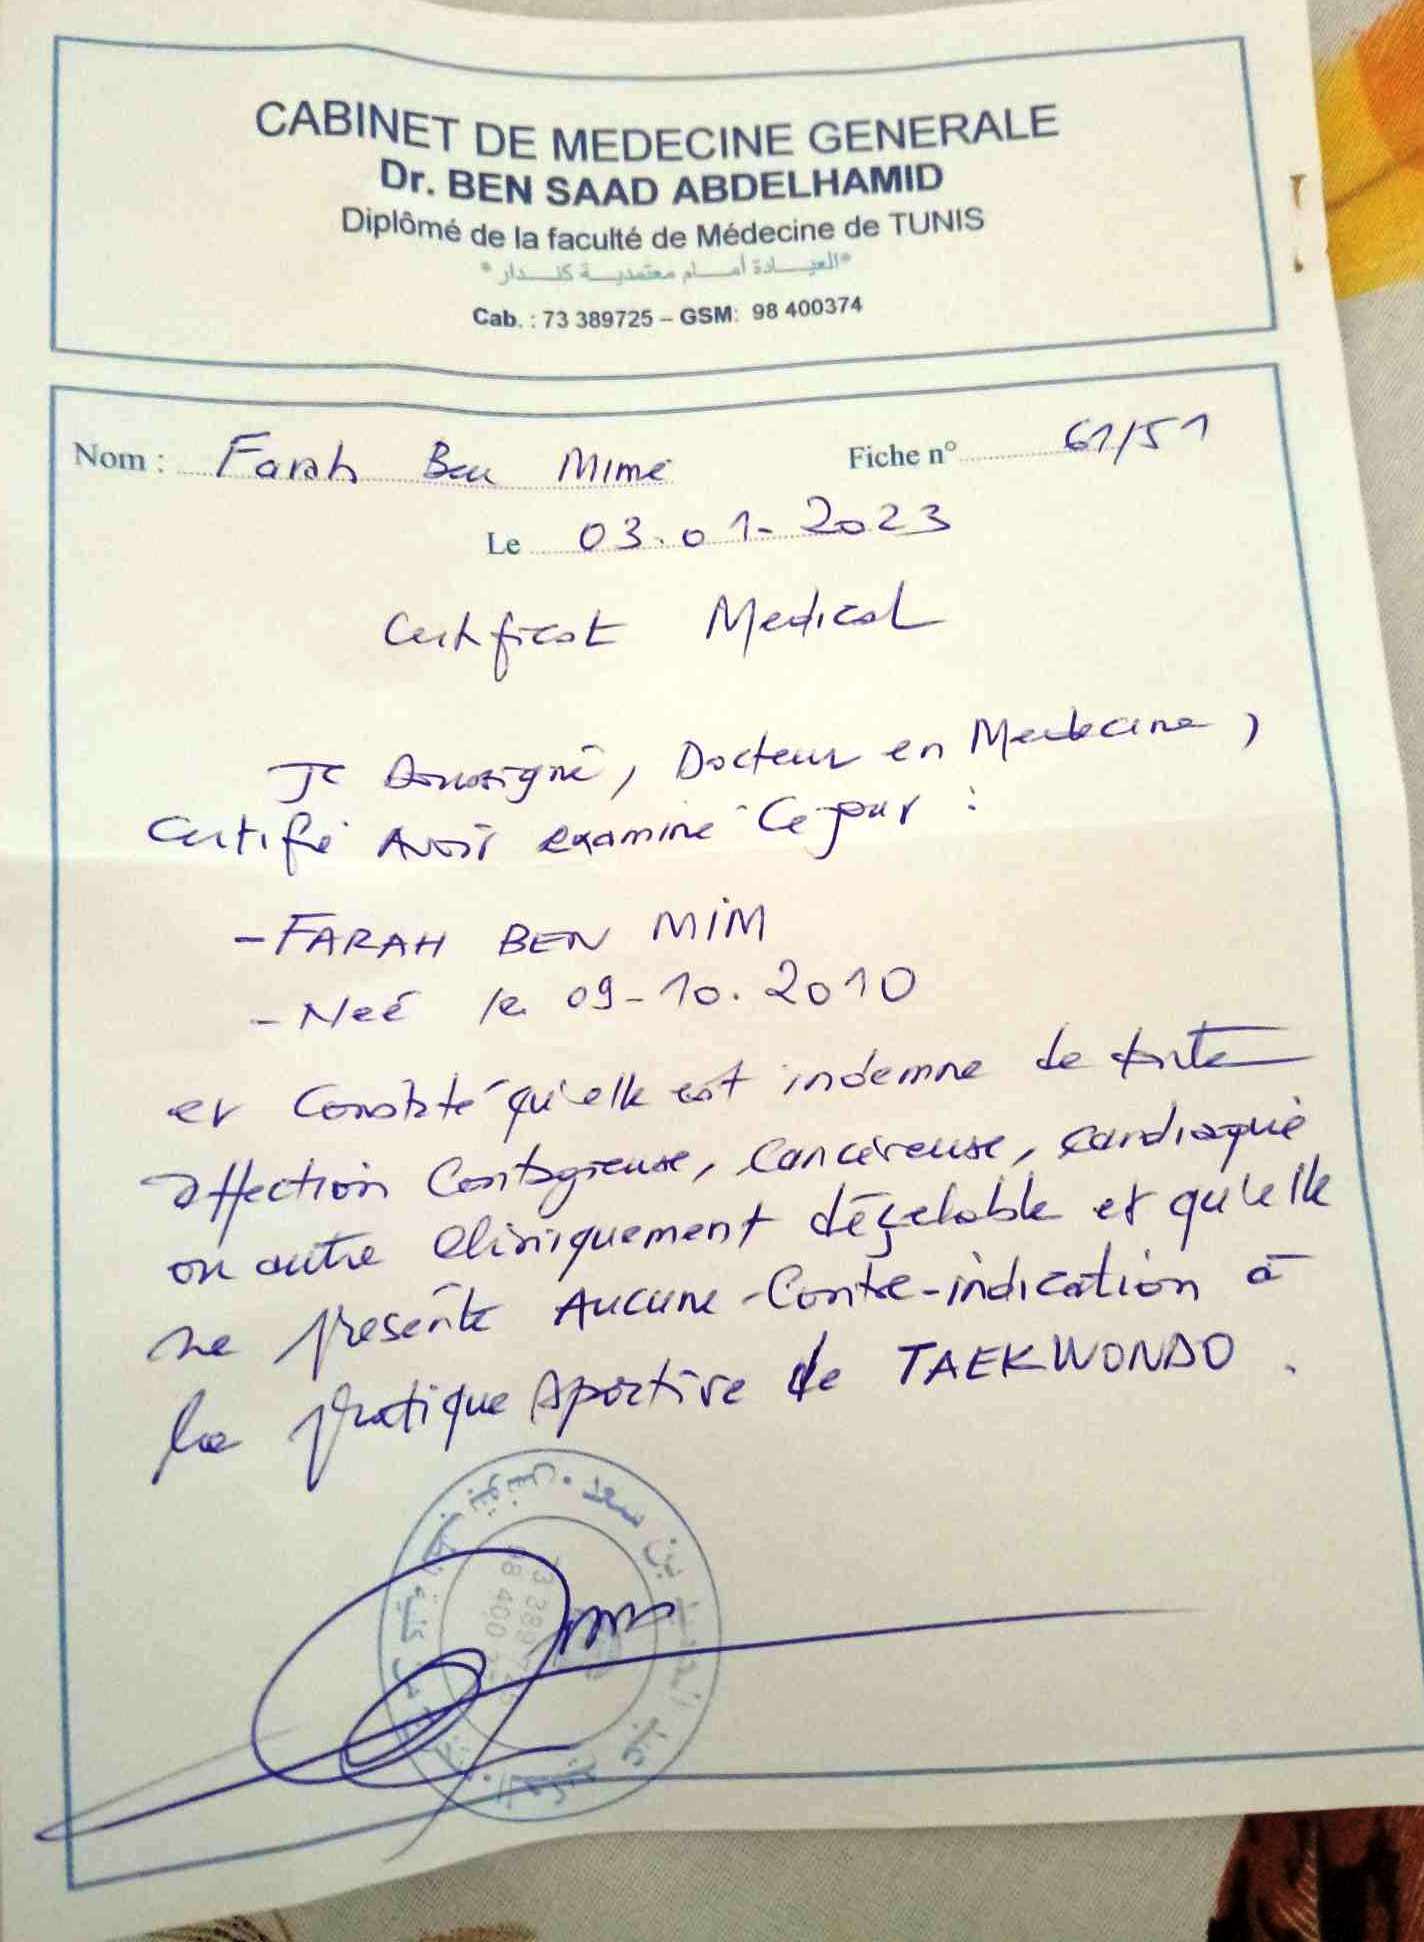 CABINET DE MEDECINE GENERALE
Dr. BEN SAAD ABDELHAMID
Diplômé de la faculté de Médecine de TUNIS
"العيادة أمام معتمدية كندار"
Cab. : 73 389725 – GSM: 98 400374
Nom : Farah Ben Mime Fiche n° 61/51
Le 03.01-2023
Certificat Medical
Je Soussigné, Docteur en Medecine,
Certifié Avoir examiné Ce jour :
- FARAH BEN MIM
- Neé le 09-10.2010
et Constaté qu'elle est indemne de toute
affection Contagieuse, Cancéreuse, Cardiaque
ou autre Cliniquement décelable et qu'elle
ne présente Aucune Contre-indication à
la pratique Sportive de TAEKWONDO.